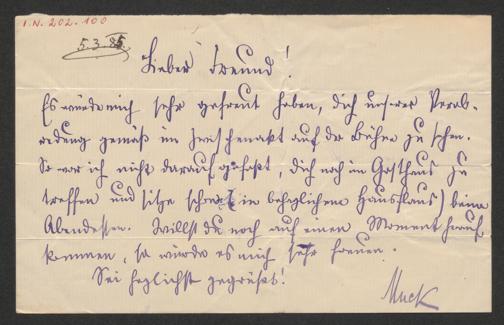 I.N. 202.100
5.3.85.
Lieber Freund!
Es würde mich sehr gefreut haben, dich unserer Verab-
redung gemäß im Zwischenakt auf der Bühne zu sehen.
So war ich nicht darauf gefaßt, dich noch im Gasthaus zu
treffen und sitze schon (in behaglichem Hausflaus) beim
Abendessen. Willst du noch auf einen Moment herauf
kommen, so würde es mich sehr freuen.
Sei herzlichst gegrüßt!
Muck